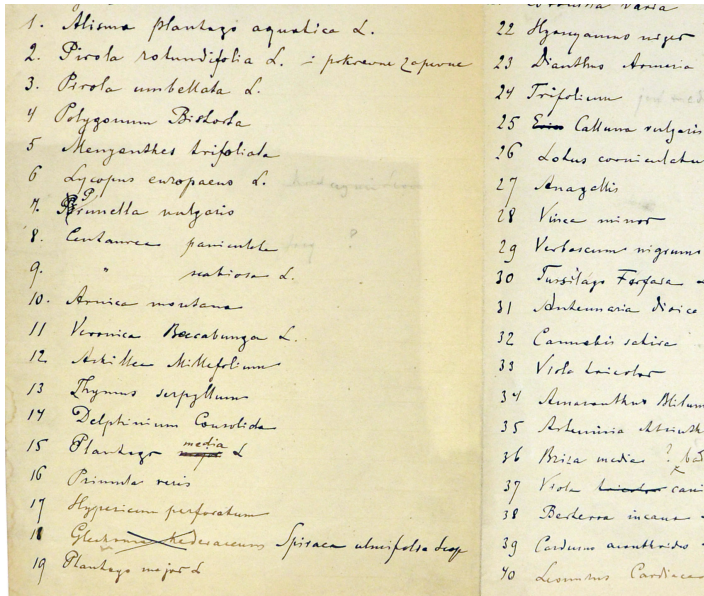 1. Alisma plantago aquatica L.
2. Pirola rotundifolia L. i pokrewne zapewne
3. Pirola umbellata L.
4 Polygonum Bistorta
5 Menyanthes trifoliata
6 Lycopus europaeus L.
7. Prunella vulgaris
8. Centaurea paniculata
9. " scabiosa L.
10. Arnica montana
11 Veronica Beccabunga L.
12. Achillea Millefolium
13 Thymus serpyllum
14 Delphinium Consolida
15 Plantago major media L
16 Primula veris
17 Hypericum perforatum
18 Glechoma hederaceum Spiraea ulmifolia Scop
19 Plantago major L
22 Hyosyamus niger
23 Dianthus Armeria
24 Trifolium
25 Erica Calluna vulgaris
26 Lotus corniculatu
27 Anagallis
28 Vinca minor
29 Verbascum nigrum
30 Tussilago Farfara
31 Antennaria dioica
32 Cannabis sativa
33 Viola tricolor
34 Amaranthus Blitum
35 Artemisia Absinth
36 Briza media ?
37 Viola tricolor cani
38 Berteroa incana
39 Carduus acanthoides
40 Leonurus Cardiaca